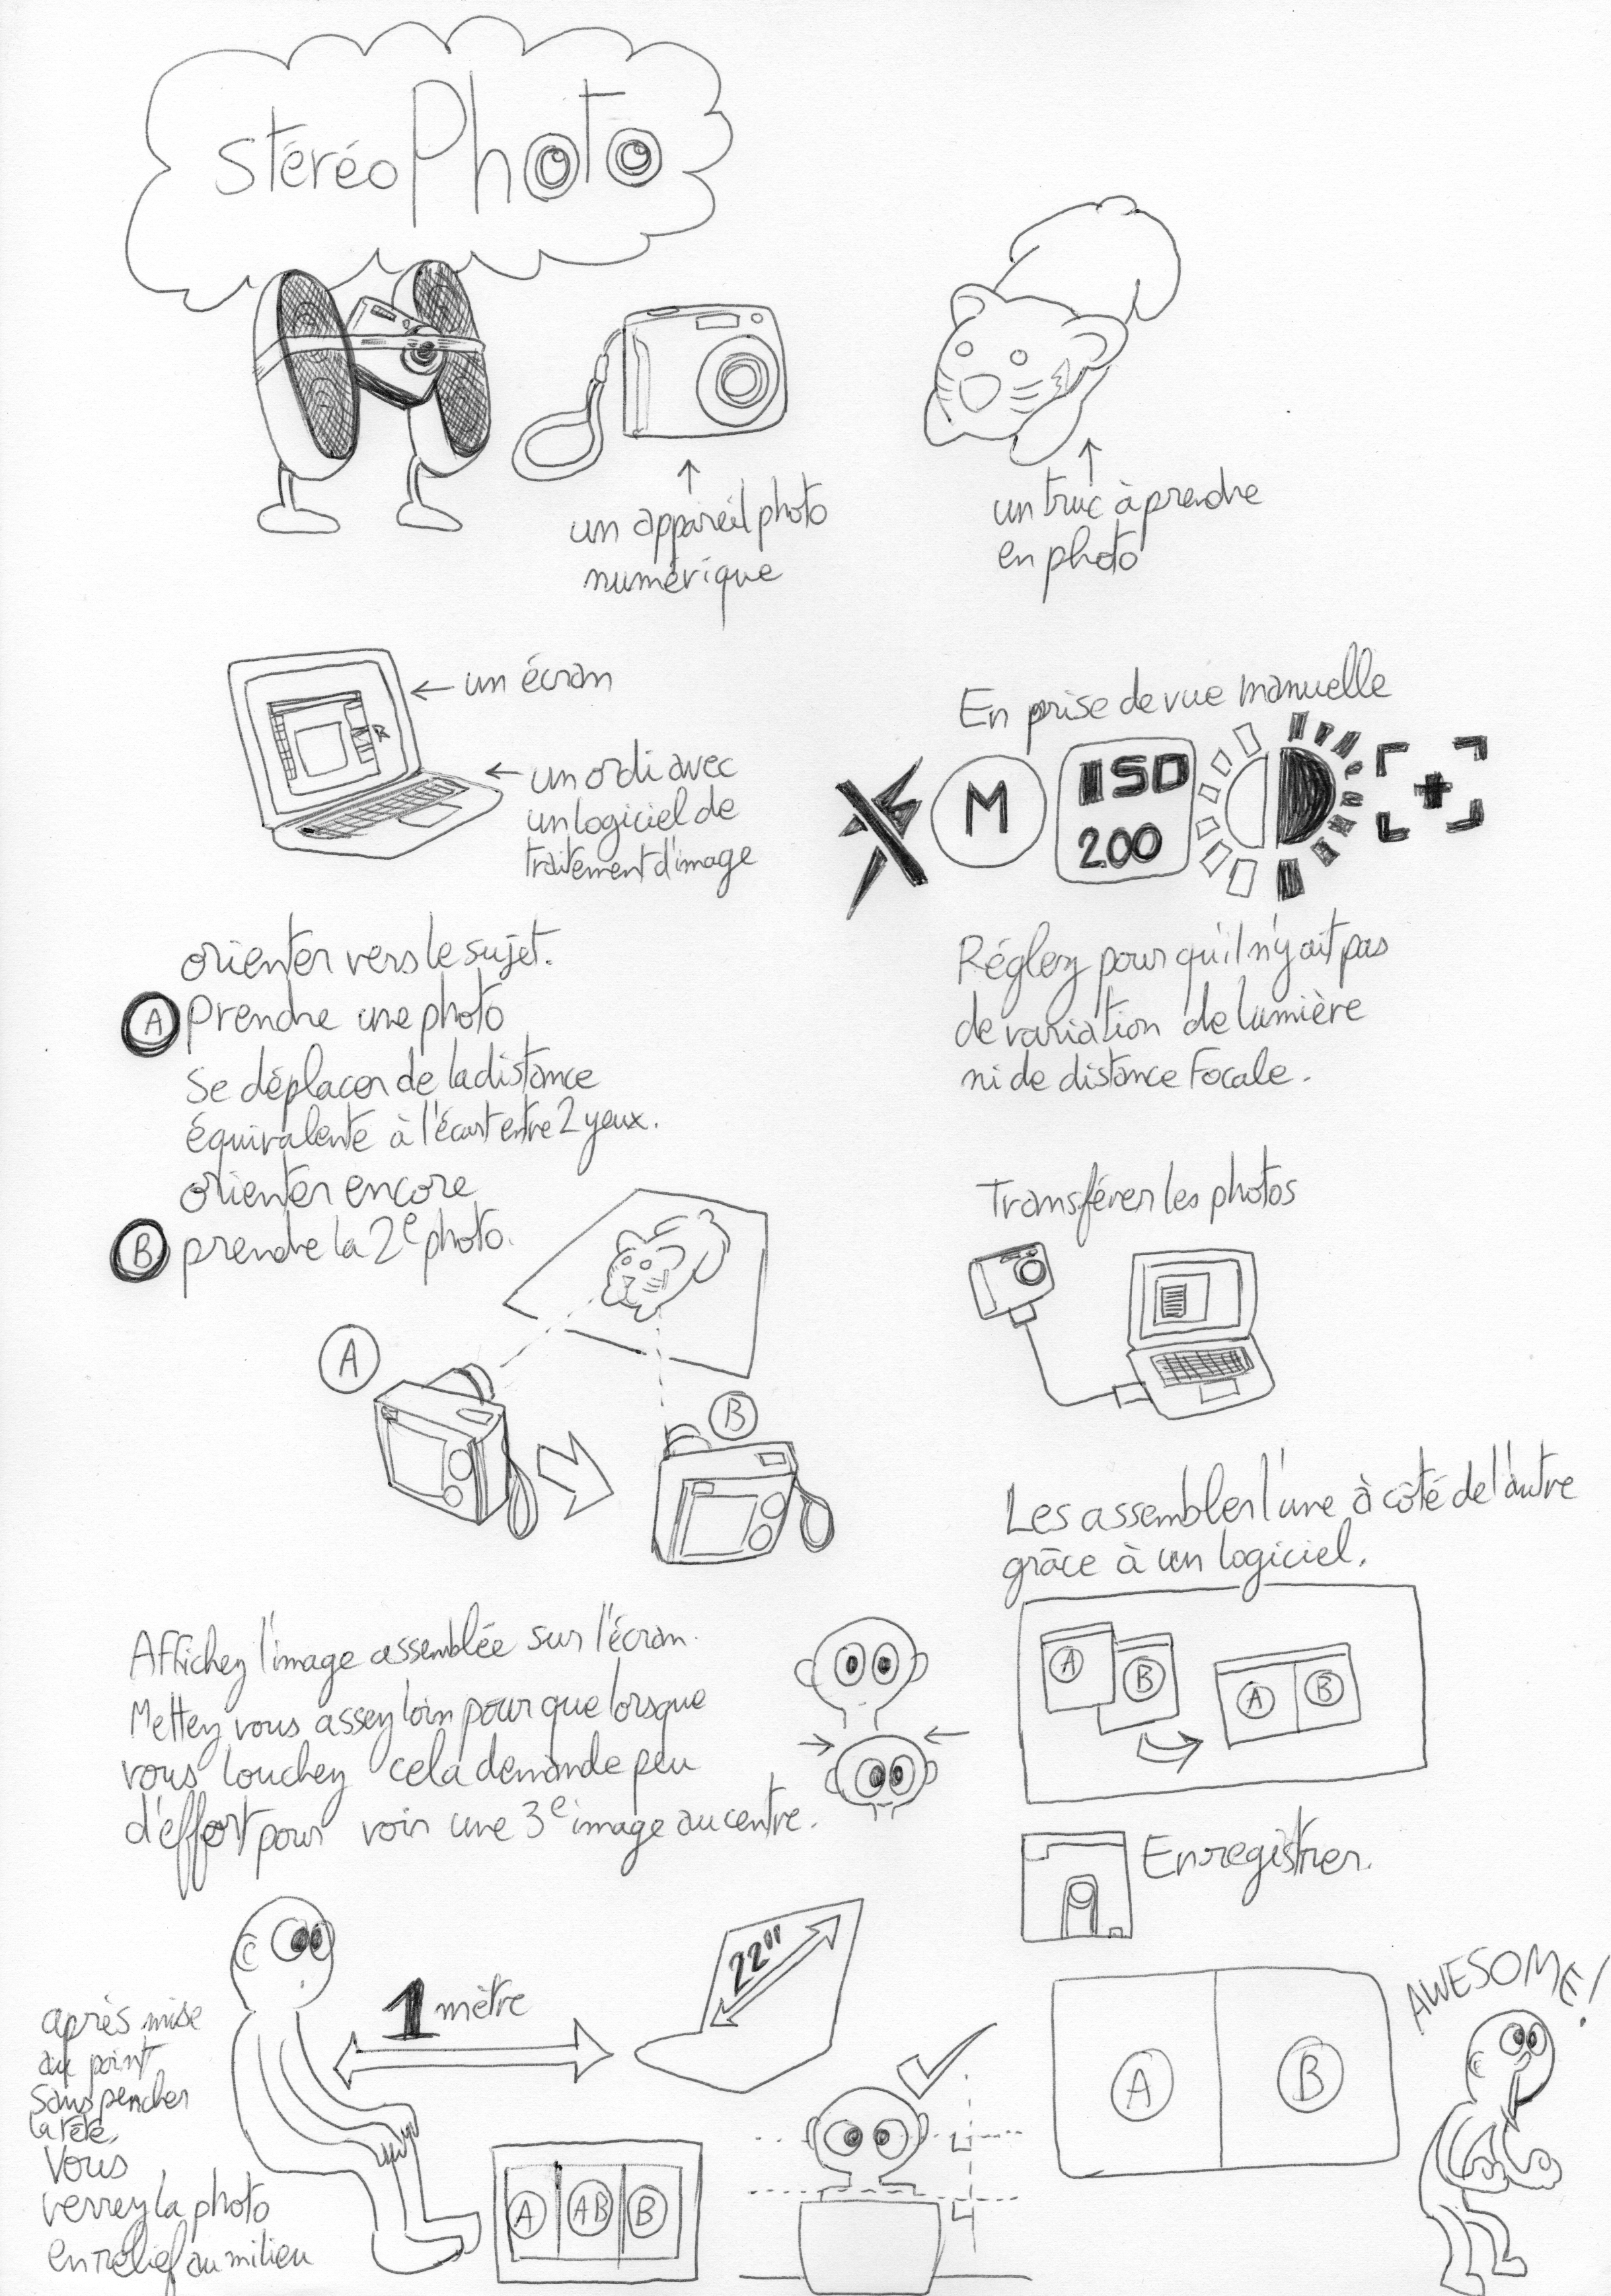 stéréoPhoto
un appareil photo
numérique
un truc à prendre
en photo
un écran
un ordi avec
un logiciel de
traitement d'image
En prise de vue manuelle
M
ISO
200
orienter vers le sujet.
A prendre une photo
se déplacer de la distance
équivalente à l'écart entre 2 yeux.
orienter encore
B prendre la 2e photo.
A
B
Réglez pour qu'il n'y ait pas
de variation de lumière
ni de distance focale.
Transférer les photos
Les assembler l'une à côté de l'autre
grâce à un logiciel.
A
B
A
B
Enregistrer.
Affichez l'image assemblée sur l'écran.
Mettez vous assez loin pour que lorsque
vous louchez cela demande peu
d'effort pour voir une 3e image au centre.
1 mètre
22"
après mise
au point
sans pencher
la tête,
vous
verrez la photo
en relief au milieu
A
AB
B
A
B
AWESOME!